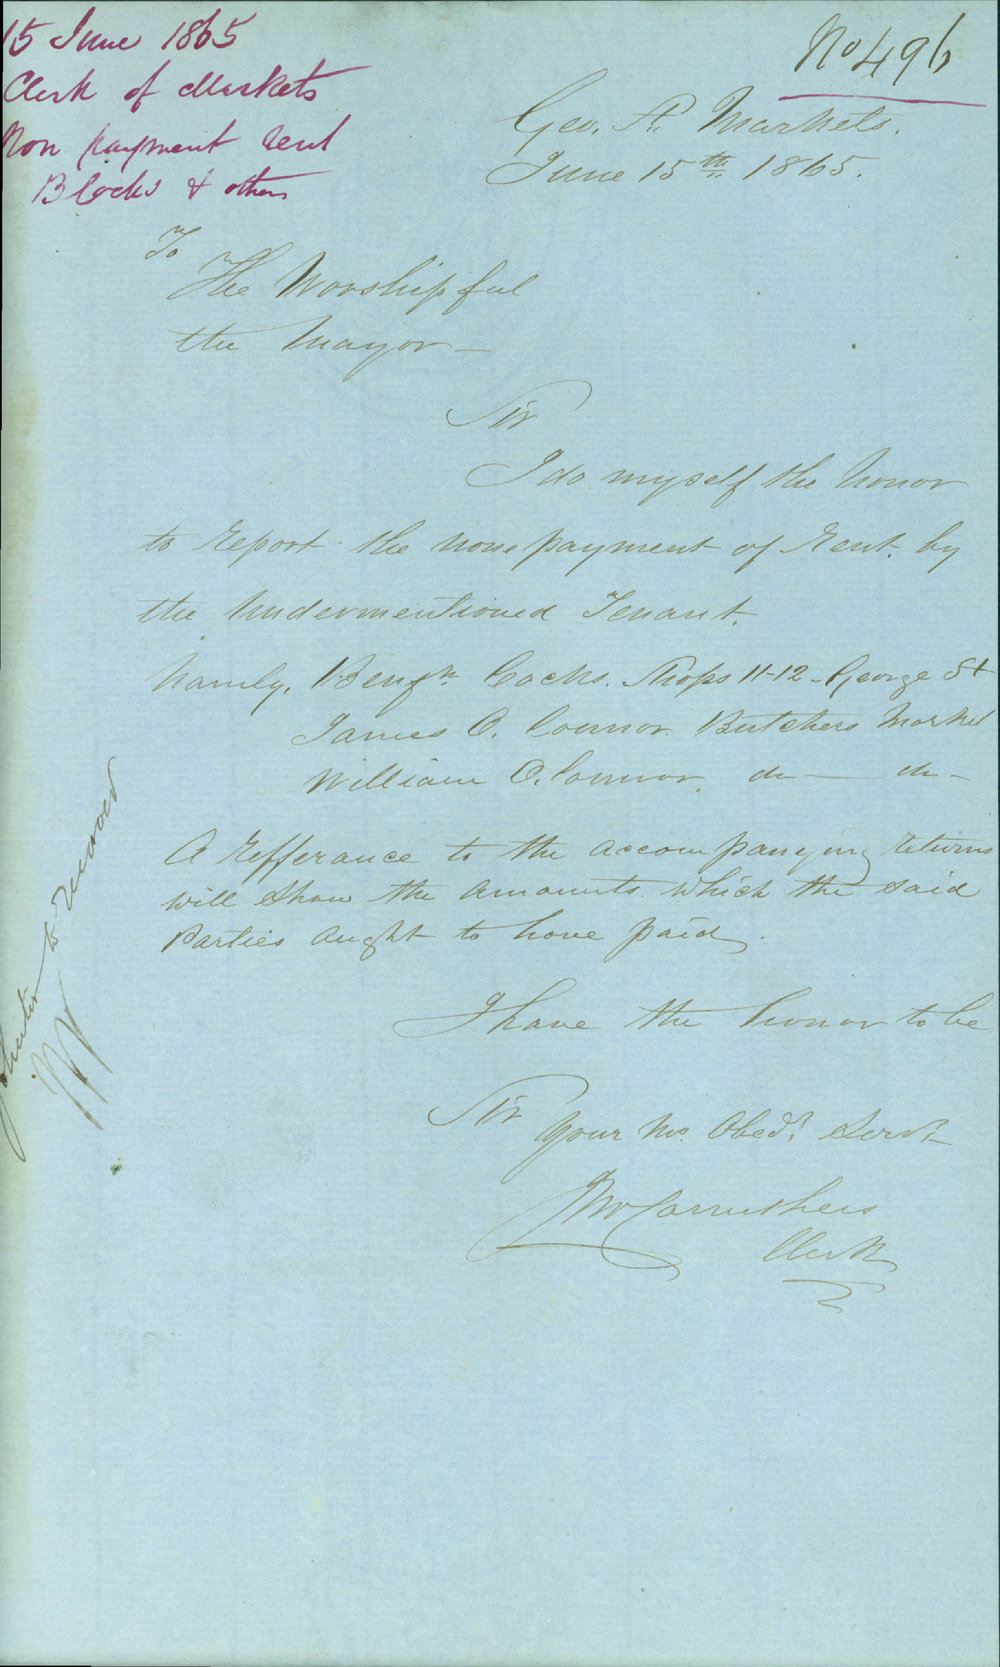 15 June 1865
Clerk of Markets
Non payment rent
B Cocks & others
No 496
Geo. St. Markets.
June 15th 1865.
To
The Worshipful
the Mayor —
Sir
I do myself the honor
to Report the none payment of Rent. by
the Undermentioned Tenant.
Namely. Benjn Cocks. Shops 11-12 - George St
James O. Connor Butchers Market
William O. Connor do — do —
A Refferance to the accompanying returns
will Show the Amounts which the said
Parties Aught to have paid.
I have the honor to be
Sir
Your Mo. Obedt Servt
Jno Carruthers
Clerk
to record